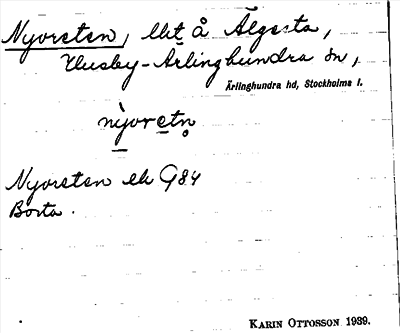 Nyorsten, lht å Älgesta,
Husby-Ärlinghundra sn,
Ärlinghundra hd, Stockholms l.
nỳoretn̥
Nyorsten ek G84
Borta.
KARIN OTTOSSON 1939.